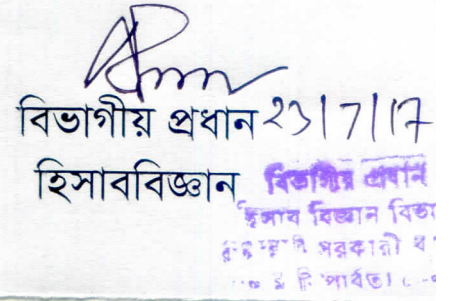 বিভাগীয় প্রধান 23/7/17
হিসাববিজ্ঞান
বিভাগীয় প্রধান
হিসাব বিজ্ঞান বিভা
সরকারী
পার্বত্য